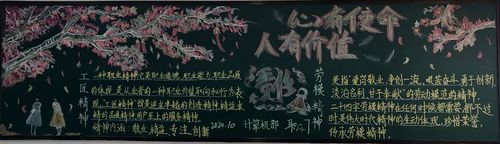 心有使命
人有价值
工匠精神
一种职业精神它是职业道德、职业能力、职业品质
的体现,是从业者的一种职业价值取向和行为表
现,"工匠精神"就是追求卓越的创造精神,精益求
精的品质精神,用户至上的服务精神。
精神内涵:敬业、精益、专注、创新
责任
2020.10
计算机部
劳模精神
是指"爱岗敬业、争创一流、艰苦奋斗、勇于创新、
淡泊名利、甘于奉献"的劳动模范的精神。
二十四字劳模精神在任何时候都需要,都不过
时是伟大时代精神的生动体现,珍惜荣誉,
传承劳模精神。